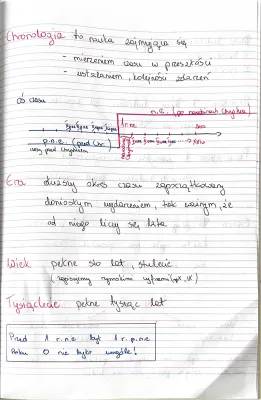 Chronologia to nauka zajmująca się
- mierzeniem czasu w przeszłości
- ustalaniem, kolejności zdarzeń
Oś czasu
n.e. (po narodzinach Chrystusa)
1 r. n.e.
p.n.e. (przed Chr.)
Era dłuższy okres czasu zapoczątkowany
doniosłym wydarzeniem, tak ważnym, że
od niego liczy się lata
Wiek pełne sto lat, stulecie
(zapisujemy rzymskimi cyframi
Tysiąclecie pełne tysiąc lat
Przed 1 r. n.e. był 1 r. p.n.e.
Roku 0 nie było wogóle!